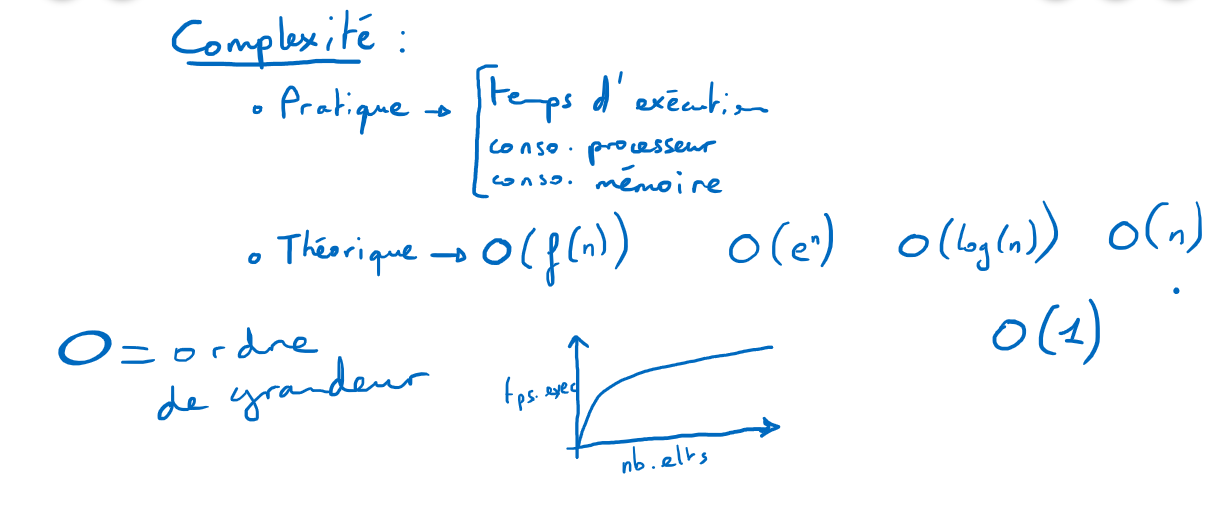 Complexité :
• Pratique → temps d'exécution
conso. processeur
conso. mémoire
• Théorique → O(f(n)) O(eⁿ) O(log(n)) O(n)
O(1)
O = ordre
de grandeur
tps. exec
nb. elts